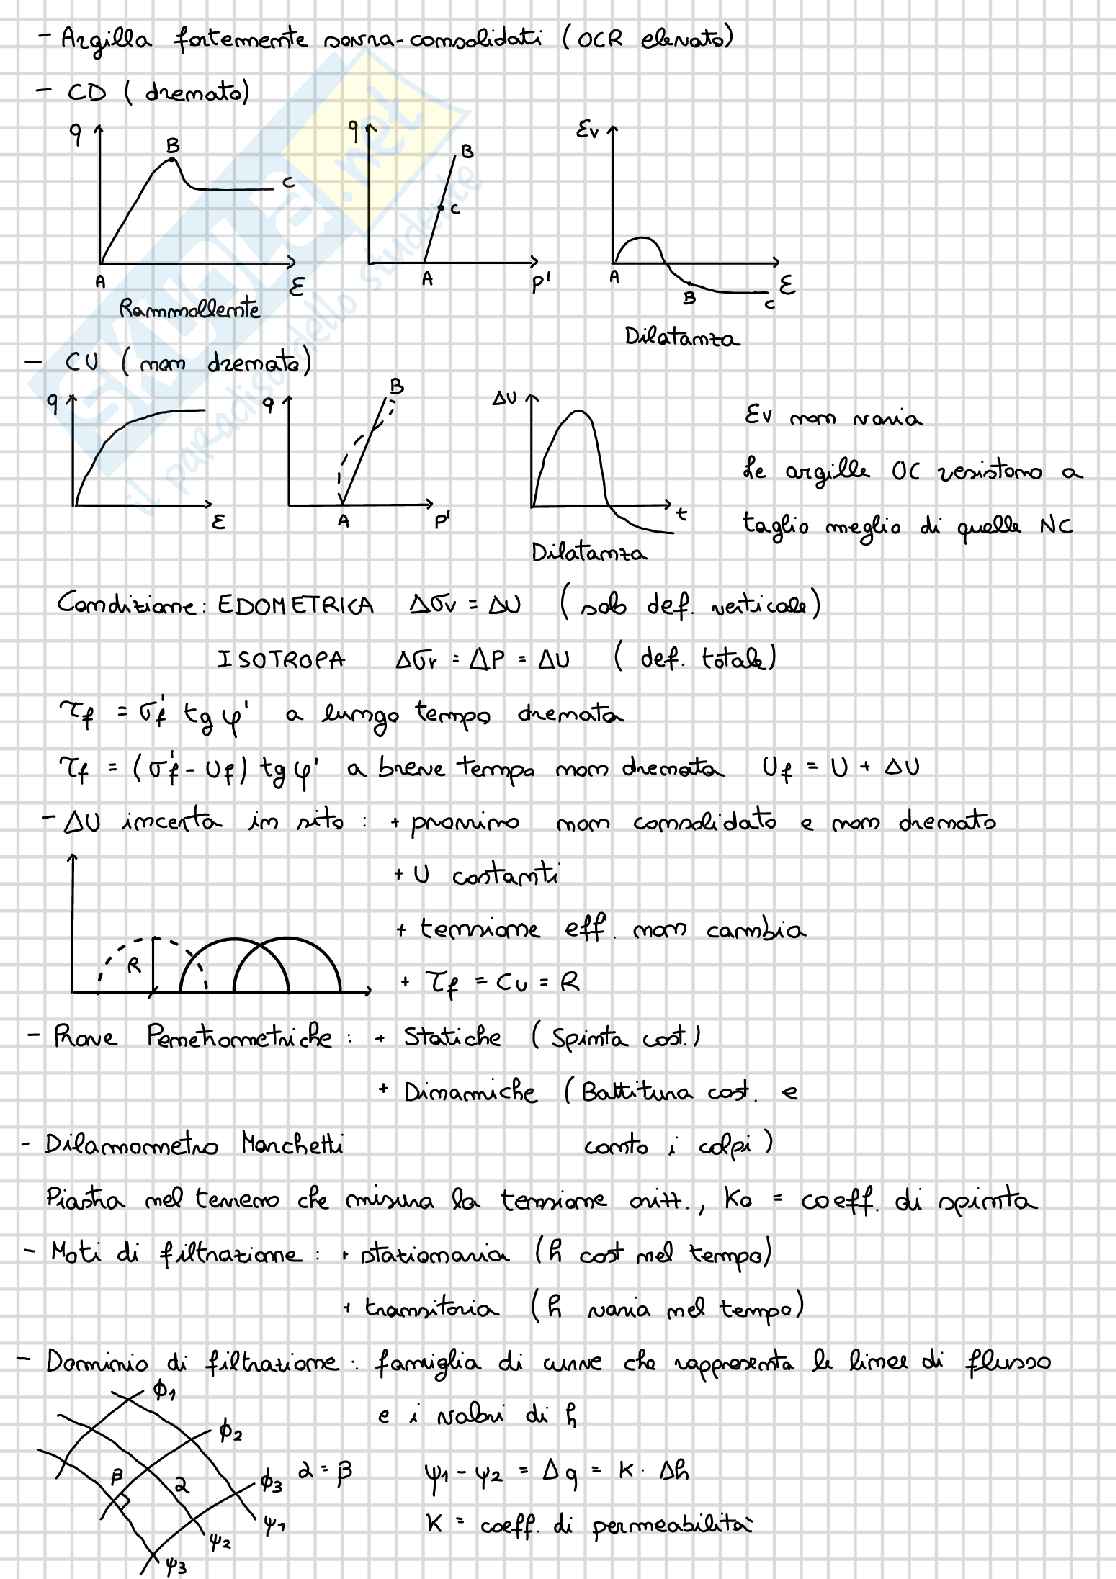 - Argilla fortemente sovra-consolidati (OCR elevato)
- CD ( drenato)
q B C A ε
Rammollente
q B C A P'
εv A B C ε
Dilatanza
- CU ( non drenato)
q ε
q B A P'
ΔU t
Dilatanza
εv non varia
Le argille OC resistono a
taglio meglio di quelle NC
Condizione: EDOMETRICA Δσv = ΔU ( solo def. verticale)
ISOTROPA Δσr = ΔP = ΔU ( def. totale)
τf = σ'f tg φ' a lungo tempo drenata
τf = (σ'f - Uf) tg φ' a breve tempo non drenata Uf = U + ΔU
- ΔU incerta in sito : + provino non consolidato e non drenato
+ U costanti
+ tensione eff. non cambia
R
+ τf = Cu = R
- Prove Penetrometriche : + Statiche ( Spinta cost.)
+ Dinamiche ( Battitura cost. e
conto i colpi )
- Dilamometro Marchetti
Piastra nel terreno che misura la tensione orizz., K0 = coeff. di spinta
- Moti di filtrazione : + stazionaria (h cost nel tempo)
+ transitoria (h varia nel tempo)
- Dominio di filtrazione : famiglia di curve che rappresenta le linee di flusso
e i valori di h
ϕ1 ϕ2 ϕ3 β α ψ1 ψ2 ψ3
α = β
ψ1 - ψ2 = Δq = K · Δh
K = coeff. di permeabilità
SKUOLA.net
il paradiso dello studente